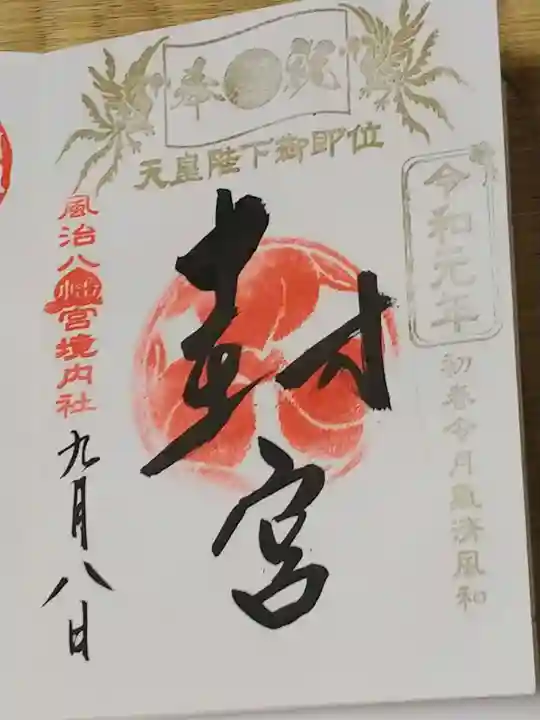 奉祝
天皇陛下御即位
令和元年
初春令月氣淸風和
封宮
風治八幡宮境内社
九月八日